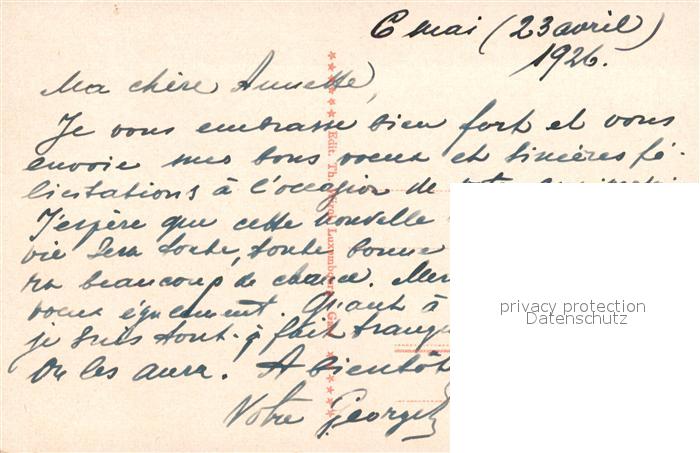 6 mai (23 avril)
1926.
Ma chère Annette,
Je vous embrasse bien fort et vous
envoie mes bons voeux et sincères fé-
licitations à l'occasion de
J'espère que cette nouvelle
vie sera toute, toute bonne
ra beaucoup de chance. Mer
voeux également. Quant à
je suis tout-à fait tranqu
On les aura. A bientôt
Votre Georges
Edit. Th. Luxembourg-Gare
privacy protection
Datenschutz